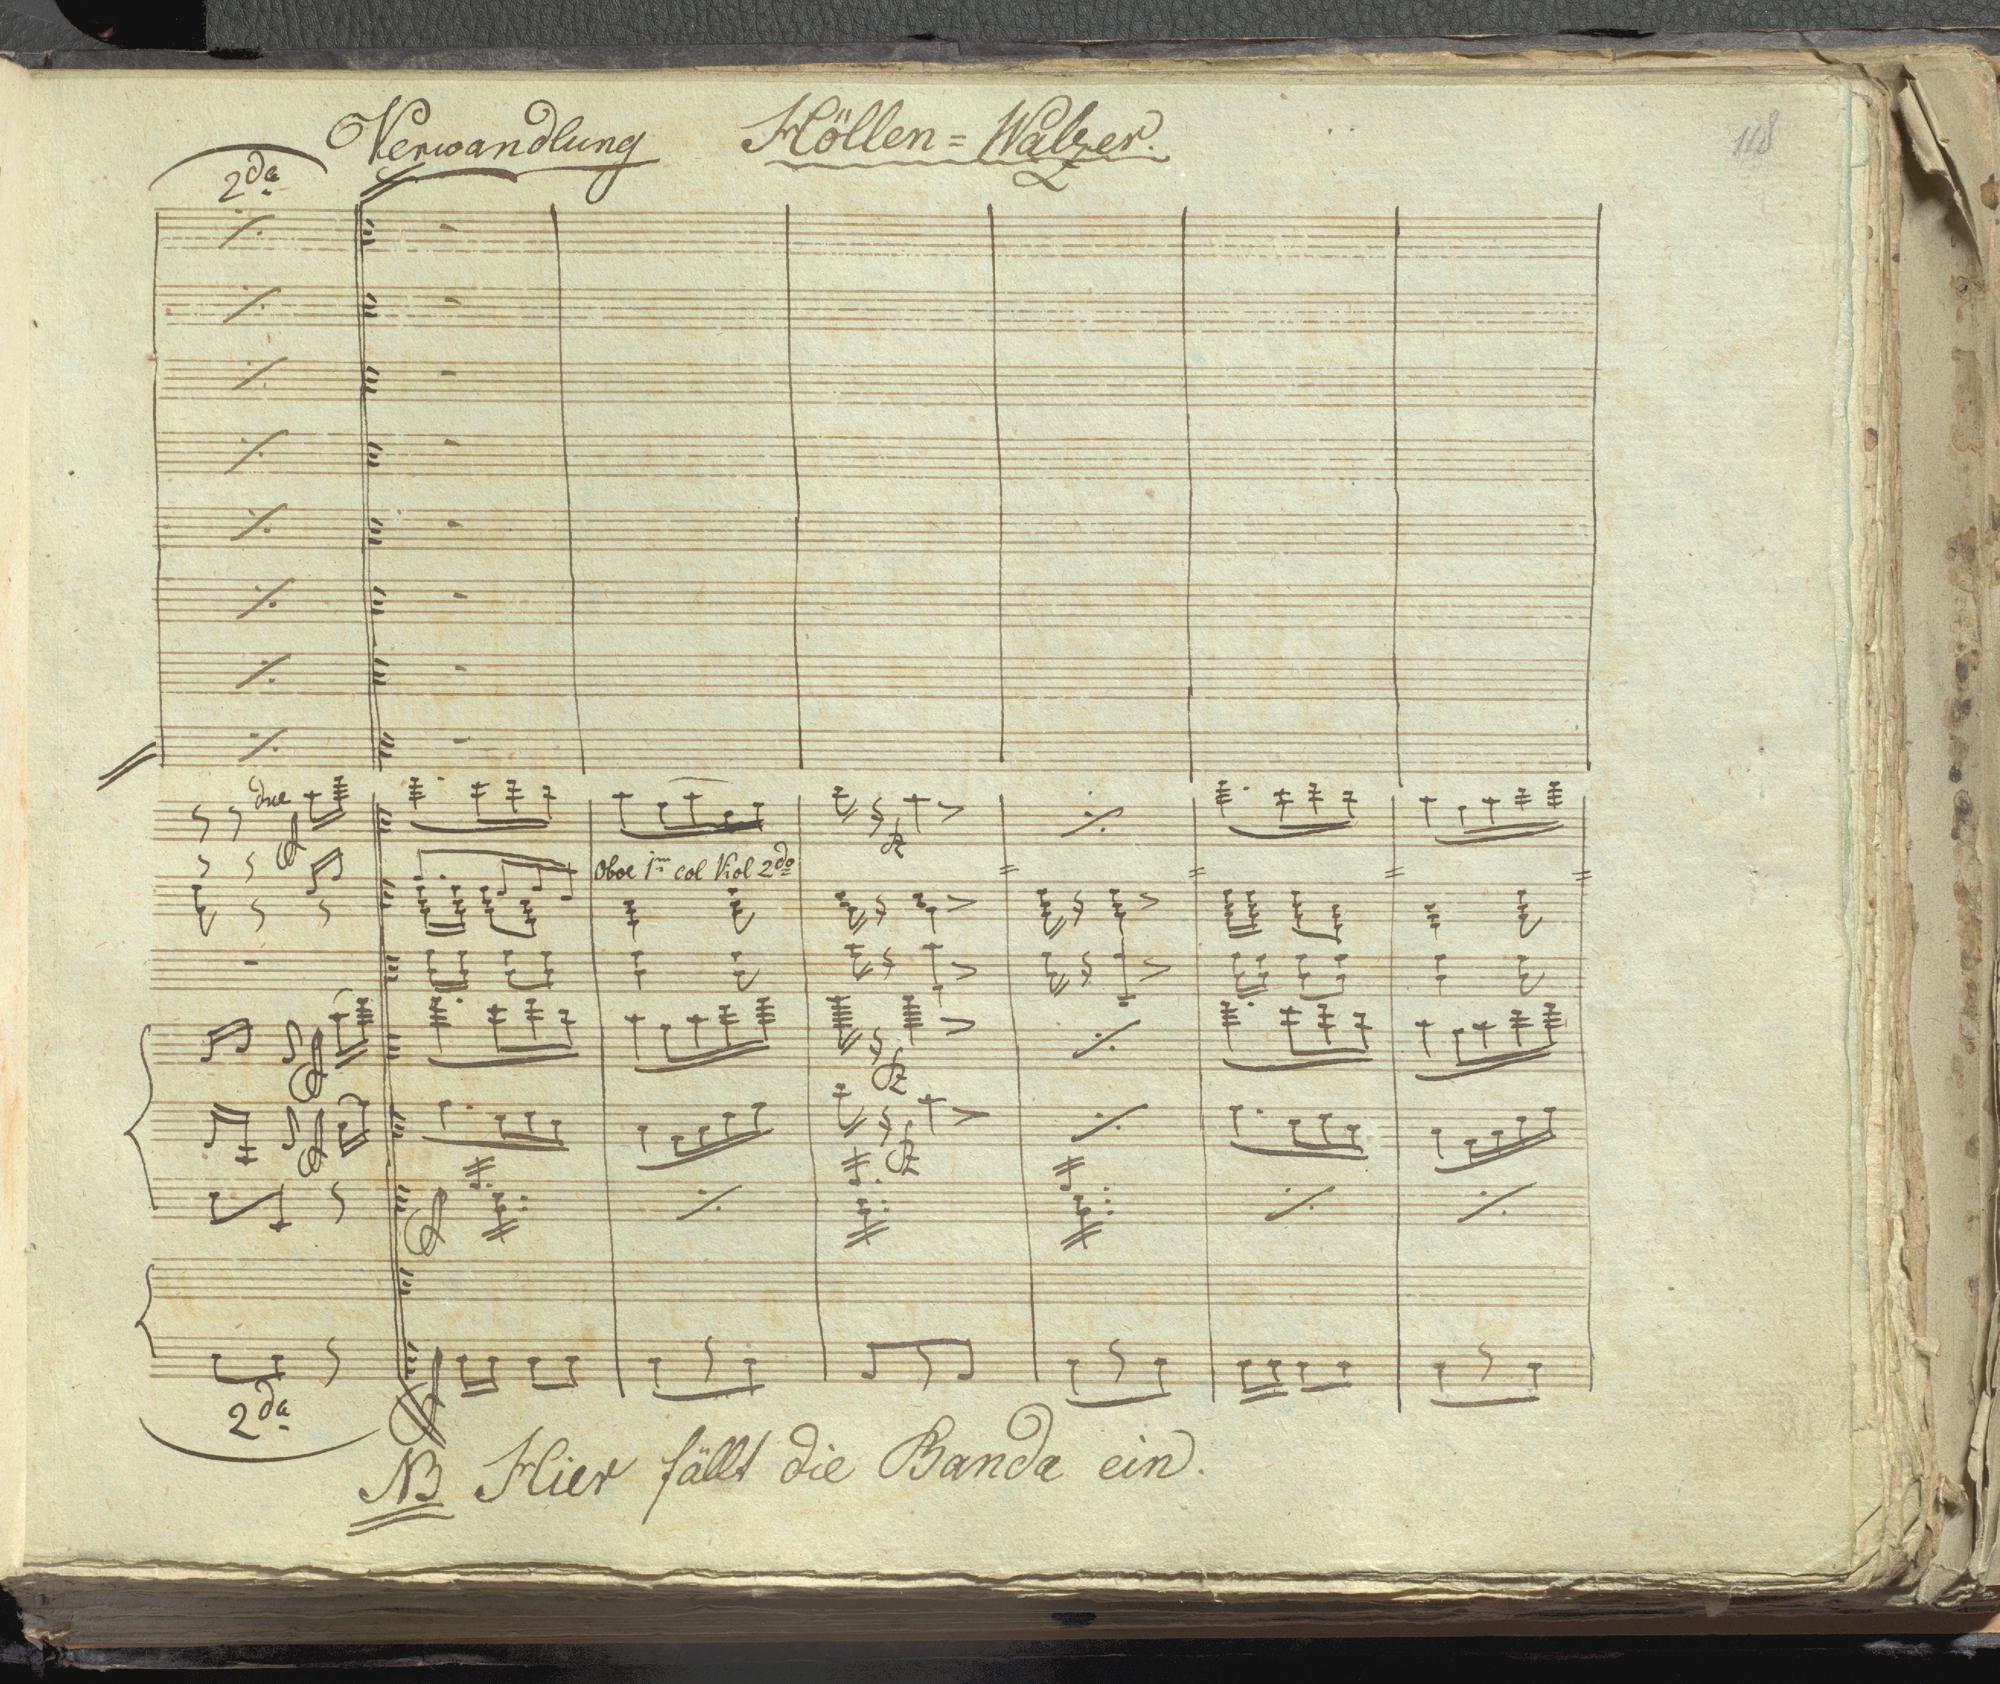 Verwandlung Höllen=Walzer.
118
2da
due
Oboe 1mo col Viol 2do
2da
NB Hier fällt die Banda ein.